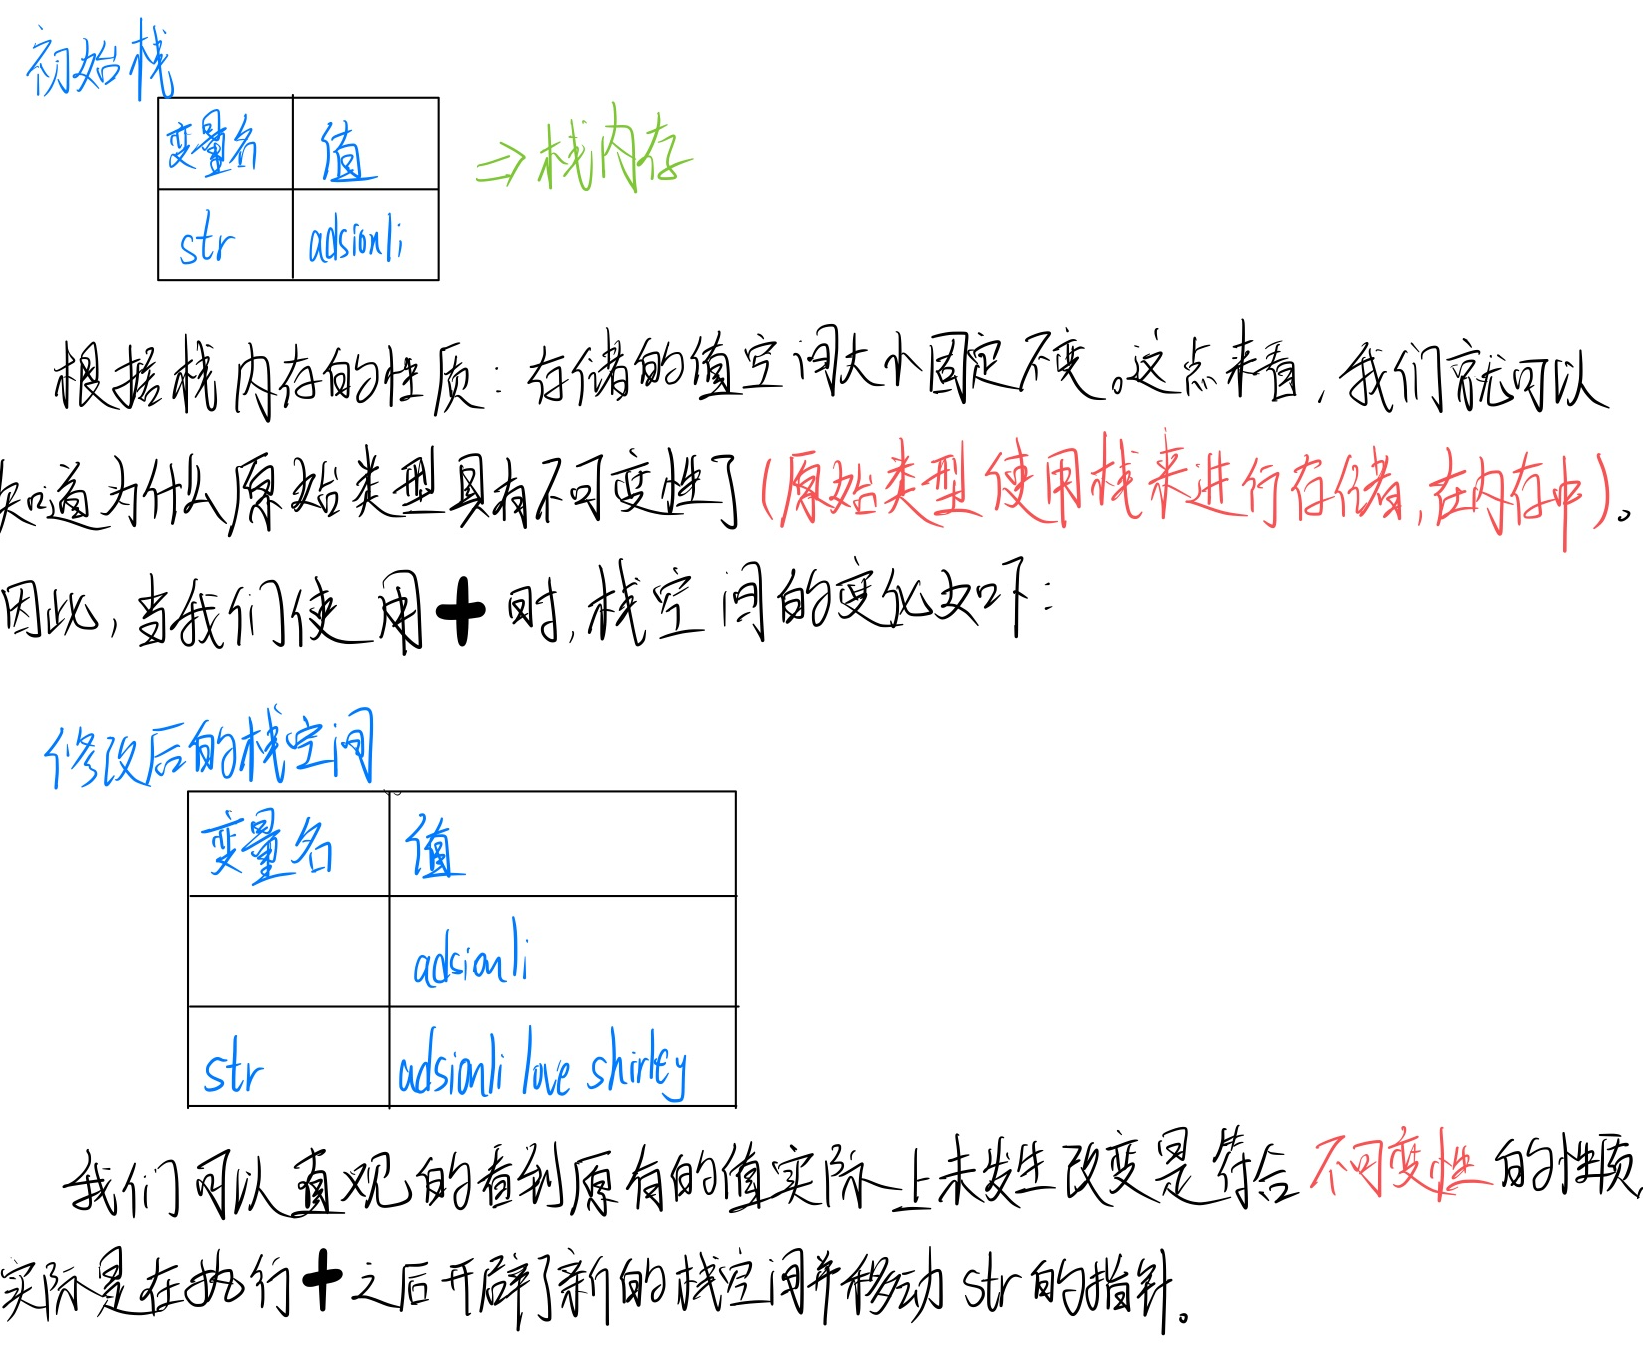 初始栈
变量名 值
⇒栈内存
str adsionli
根据栈内存的性质：存储的值空间大小固定不变。这点来看，我们就可以
知道为什么原始类型具有不可变性了（原始类型使用栈来进行存储，在内存中）。
因此，当我们使用+时，栈空间的变化如下：
修改后的栈空间
变量名 值
adsionli
str adsionli love shirley
我们可以直观的看到原有的值实际上未发生改变是符合不可变性的性质，
实际是在执行+之后开辟了新的栈空间并移动str的指针。